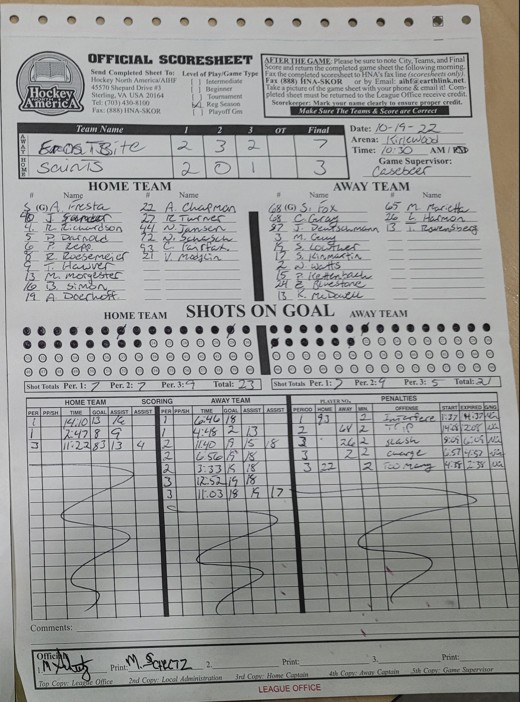 Hockey North America
OFFICIAL SCORESHEET
Send Completed Sheet To:
Hockey North America/AIHF
45570 Shepard Drive #3
Sterling, VA USA 20164
Tel: (703) 430-8100
Fax: (888) HNA-SKOR
Level of Play/Game Type
[ ] Intermediate
[ ] Beginner
[ ] Tournament
[✓] Reg Season
[ ] Playoff Gm
AFTER THE GAME: Please be sure to note City, Teams, and Final
Score and return the completed game sheet the following morning.
Fax the completed scoresheet to HNA's fax line (scoresheets only).
Fax (888) HNA-SKOR or by Email: aihf@earthlink.net
Take a picture of the game sheet with your phone & email it! Com-
pleted sheet must be returned to the League Office receive credit.
Scorekeeper: Mark your name clearly to ensure proper credit.
Make Sure The Teams & Score are Correct
Team Name 1 2 3 OT Final
AWAY FrostBite 2 3 2 7
HOME Saints 2 0 1 3
Date: 10-19-22
Arena: Kirkwood
Time: 10:30 AM
Game Supervisor:
Casebeer
HOME TEAM
# Name # Name
5 (G) A. Presta 22 A. Chapman
27 R. Turner
4 R. Richardson 44 N. Jansen
5 D. Darnold
6 P. Zepp
8 R. Roesemeier 21 V. Modglin
9 T. Hawver
13 M. Morgester
16 B. Simon
19 A. Doerhoff
AWAY TEAM
# Name # Name
68 (G) S. Fox 65 M. Marietta
68 C. Gray 26 L. Harmon
97 J. Deutschmann 13 T. Ravensberg
3 M. Guy
19 S. Lowther
17 S. Kinmartin
2 N. Watts
15 P. Kettenbach
24 E. Bluestone
13 K. McDowell
SHOTS ON GOAL
HOME TEAM AWAY TEAM
Shot Totals Per. 1: 7 Per. 2: 7 Per. 3: 9 Total: 23
Shot Totals Per. 1: 7 Per. 2: 9 Per. 3: 5 Total: 21
HOME TEAM SCORING AWAY TEAM PENALTIES
PER PP/SH TIME GOAL ASSIST ASSIST
1 14:10 13 16
1 2:47 8 9
3 11:22 83 13 4
PER PP/SH TIME GOAL ASSIST ASSIST
1 6:46 18
1 4:48 2 13
2 11:40 9 15 18
2 6:56 19 18
2 3:33 19 18
3 12:52 19 18
3 11:03 18 19 17
PLAYER NO.
PERIOD HOME AWAY MIN. OFFENSE START EXPIRED G/NG
1 93 2 Interfere
2 68 2 Trip
3 26 2 slash
3 2 2 charge 6:57 4:57
3 22 2 Too Many 4:38 2:38
Comments:
Officials
1. Print: M. Schutz 2. Print: 3. Print:
Top Copy: League Office 2nd Copy: Local Administration 3rd Copy: Home Captain 4th Copy: Away Captain 5th Copy: Game Supervisor
LEAGUE OFFICE